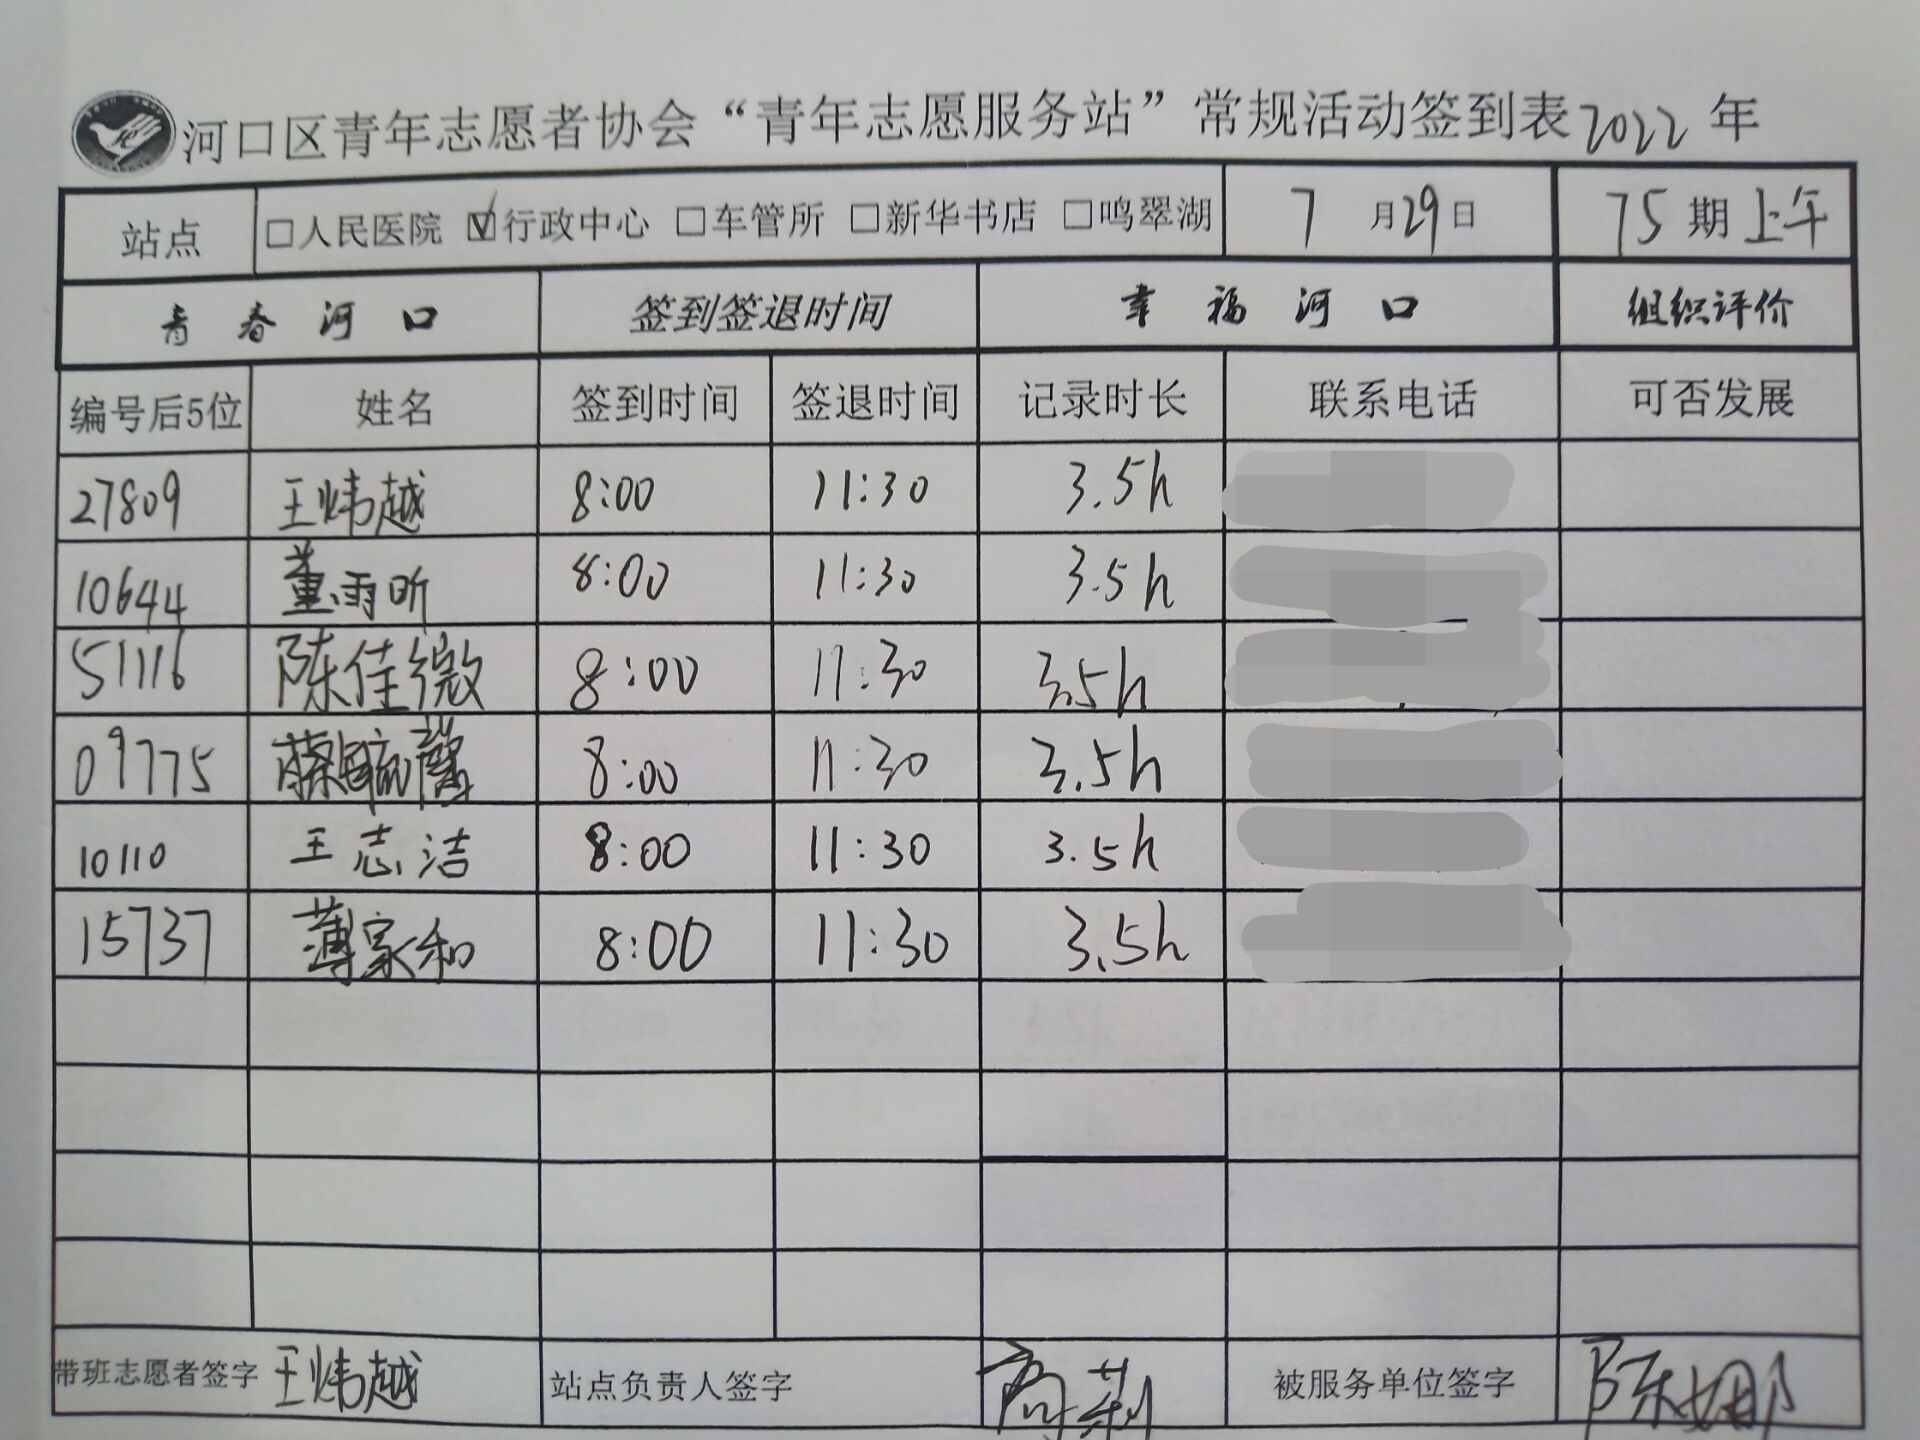 河口区青年志愿者协会“青年志愿服务站”常规活动签到表2022年
站点 □人民医院 ☑行政中心 □车管所 □新华书店 □鸣翠湖 7月29日 75期上午
青春河口 签到签退时间 幸福河口 组织评价
编号后5位 姓名 签到时间 签退时间 记录时长 联系电话 可否发展
27809 王炜越 8:00 11:30 3.5h
10644 董雨昕 8:00 11:30 3.5h
51116 陈佳微 8:00 11:30 3.5h
09775 蔡毓馨 8:00 11:30 3.5h
10110 王志洁 8:00 11:30 3.5h
15737 薄家和 8:00 11:30 3.5h
带班志愿者签字 王炜越 站点负责人签字 被服务单位签字 陈娜